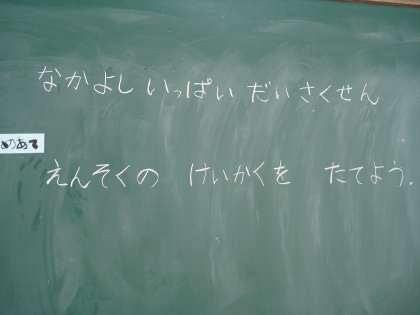 なかよし いっぱい だいさくせん
めあて
えんそくの けいかくを たてよう.